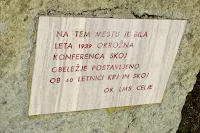 NA TEM MESTU JE BILA
LETA 1939 OKROŽNA
KONFERENCA SKOJ
OBELEŽJE POSTAVLJENO
OB 40 LETNICI KPJ IN SKOJ
OK LMS CELJE